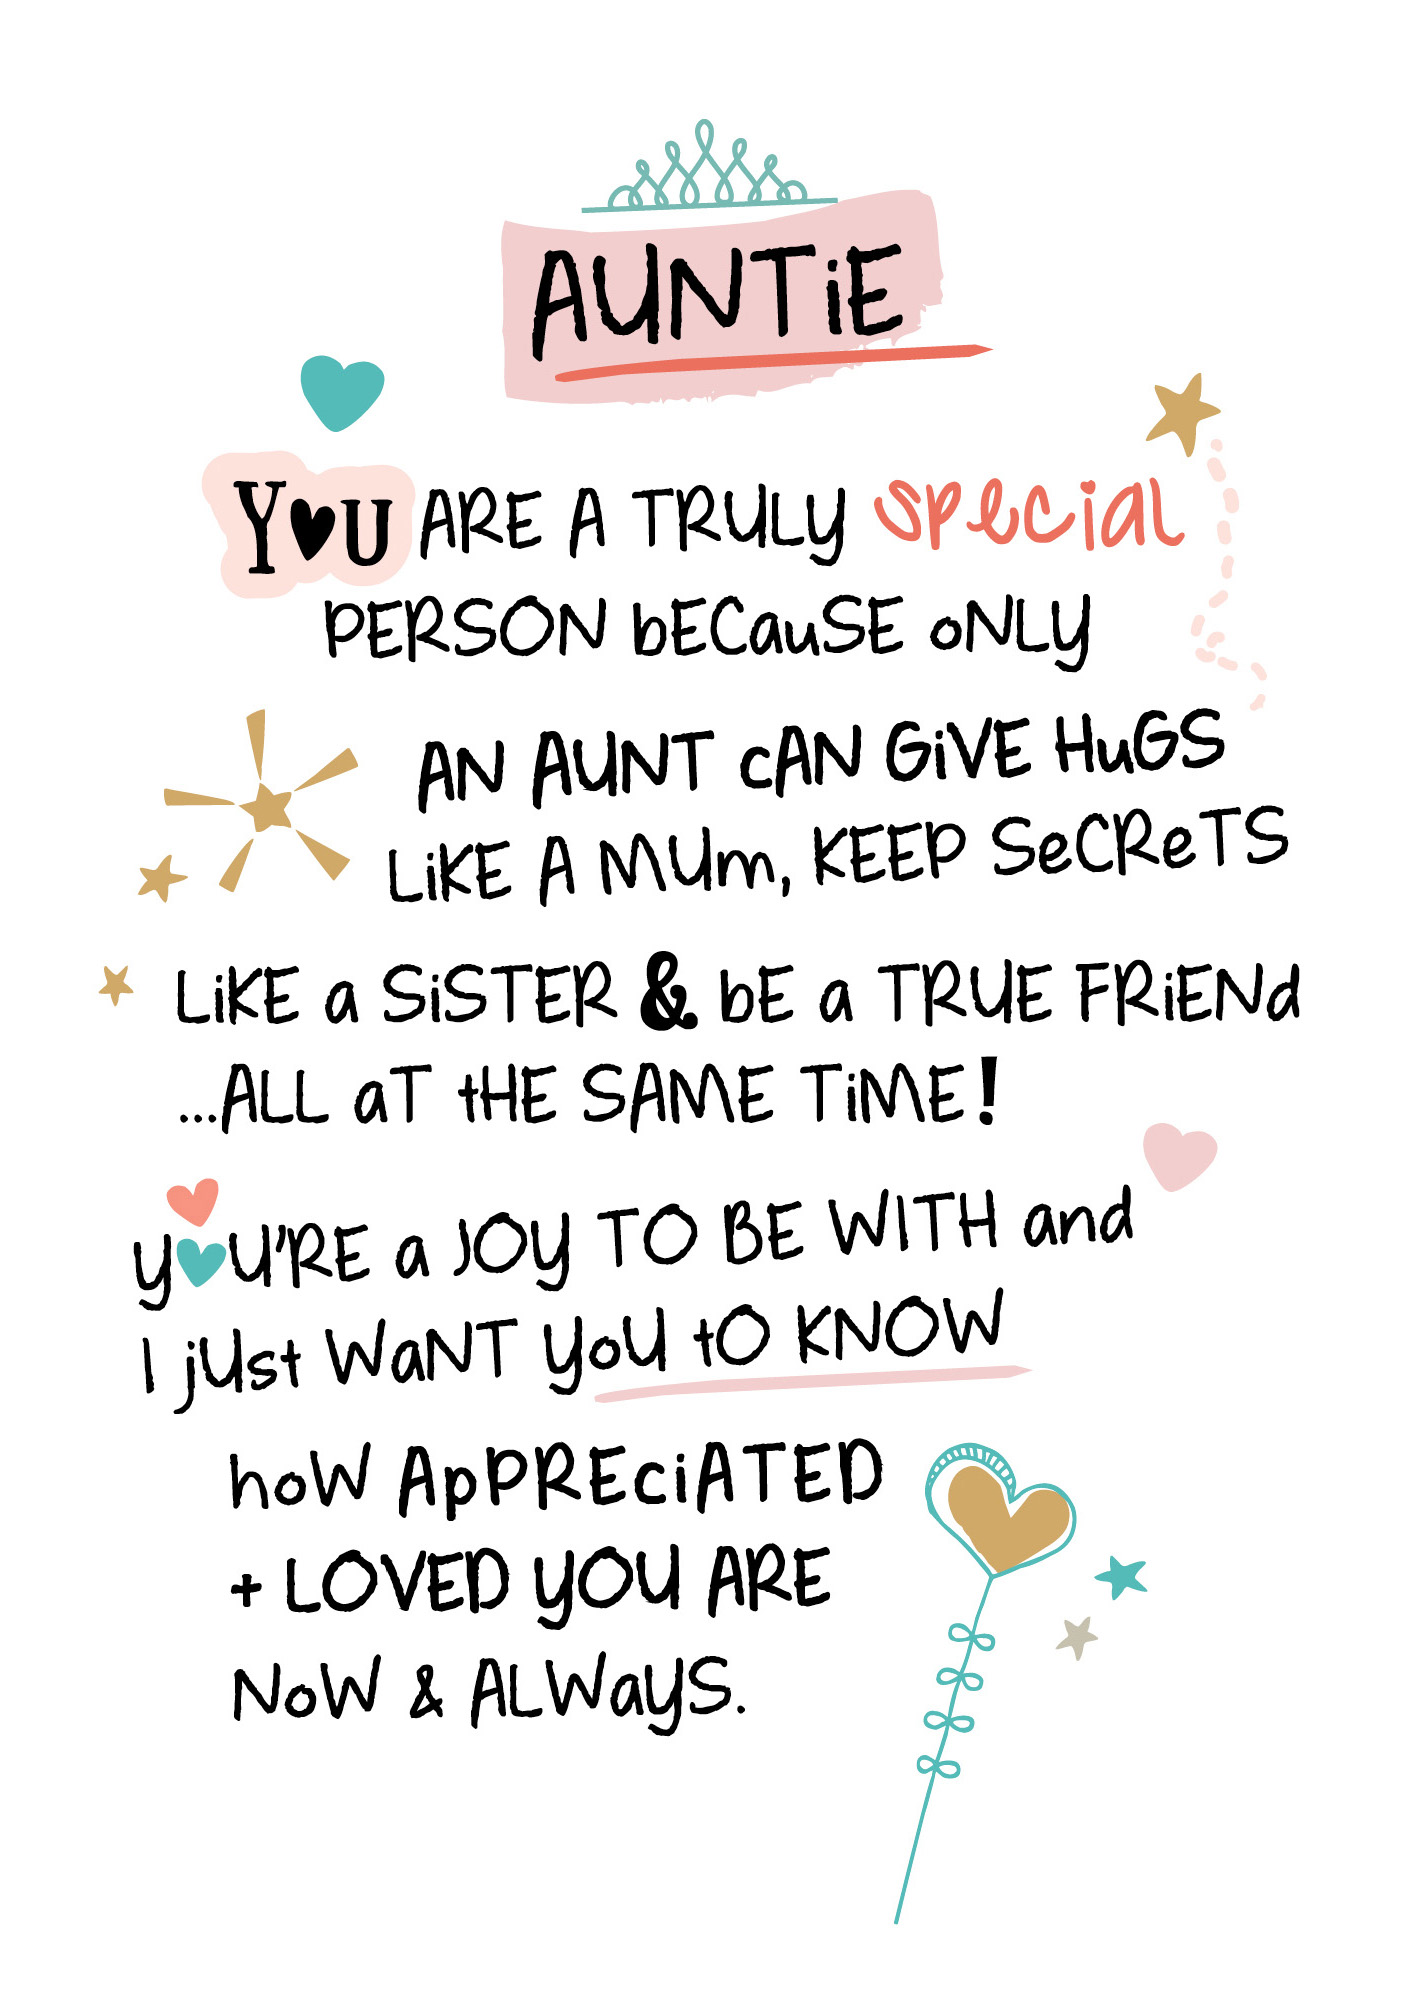 AUNTiE
Y♥U ARE A TRULY special
PERSON bECauSE oNLY
AN AUNT cAN GiVE HuGS
LiKE A MUm, KEEP SeCReTS
LiKE a SiSTER & bE a TRUE FRiENd
...ALL aT tHE SAME TiME!
y♥U'RE a JOY TO BE WITH and
I jUst WaNT YoU tO KNOW
hoW ApPREciATED
+ LOVED YOU ARE
NoW & ALWayS.